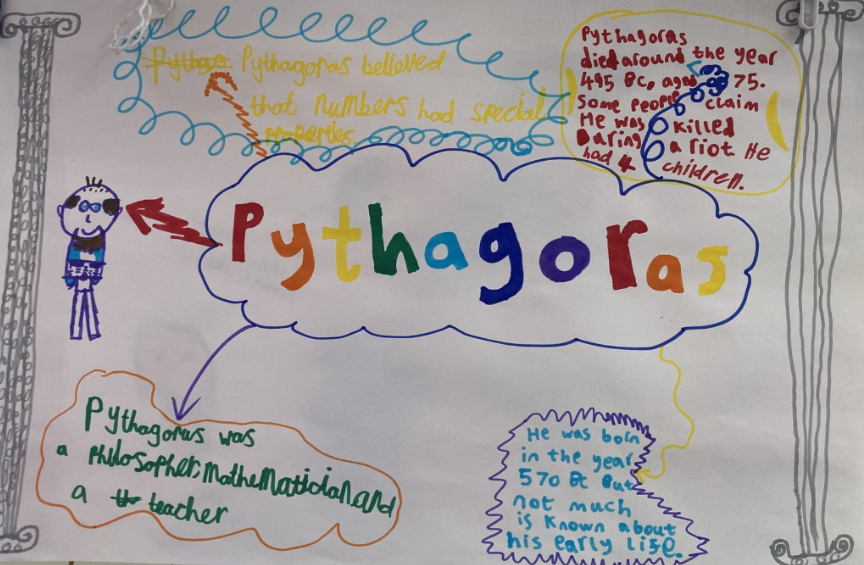 Pythagoras believed
that numbers had special
properties
Pythagoras
died around the year
495 BC, aged 75.
Some people claim
He was killed
During a riot He
had 4 children.
Pythagoras
Pythagoras was
a Philosopher, Mathematician and
a teacher
He was born
in the year
570 BC But
not much
is known about
his early life.